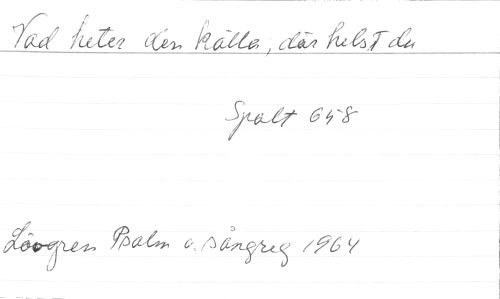 Vad heter den källa, där helst du
Spalt 658
Lövgren Psalm o. sångreg 1964